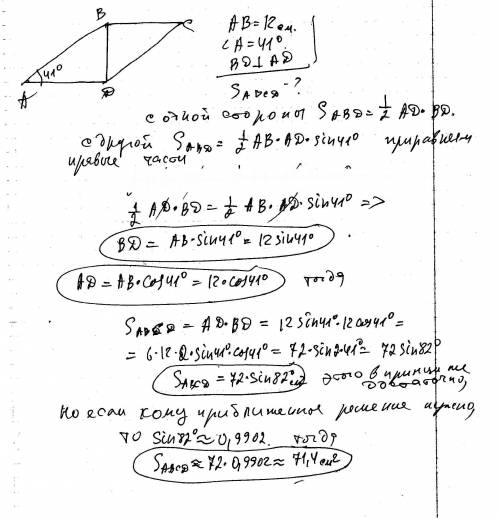 B
C
41°
A
D
AB = 12 см.
<A = 41°
BD ⊥ AD
S_ABCD - ?
с одной стороны S_ABD = 1/2 AD · BD.
с другой S_ABD = 1/2 AB · AD · sin41° приравняем
правые части
1/2 AD · BD = 1/2 AB · AD · sin41° =>
BD = AB · sin41° = 12 sin41°.
AD = AB · cos41° = 12 · cos41° тогда
S_ABCD = AD · BD = 12 sin41° · 12 cos41° =
= 6 · 12 · 2 · sin41° · cos41° = 72 · sin2·41° = 72 sin82°
S_ABCD = 72 · sin82° см² этого в принципе
достаточно,
но если кому приближенное решение нужно,
то sin82° ≈ 0,9902. тогда
S_ABCD ≈ 72 · 0,9902 ≈ 71,4 см²